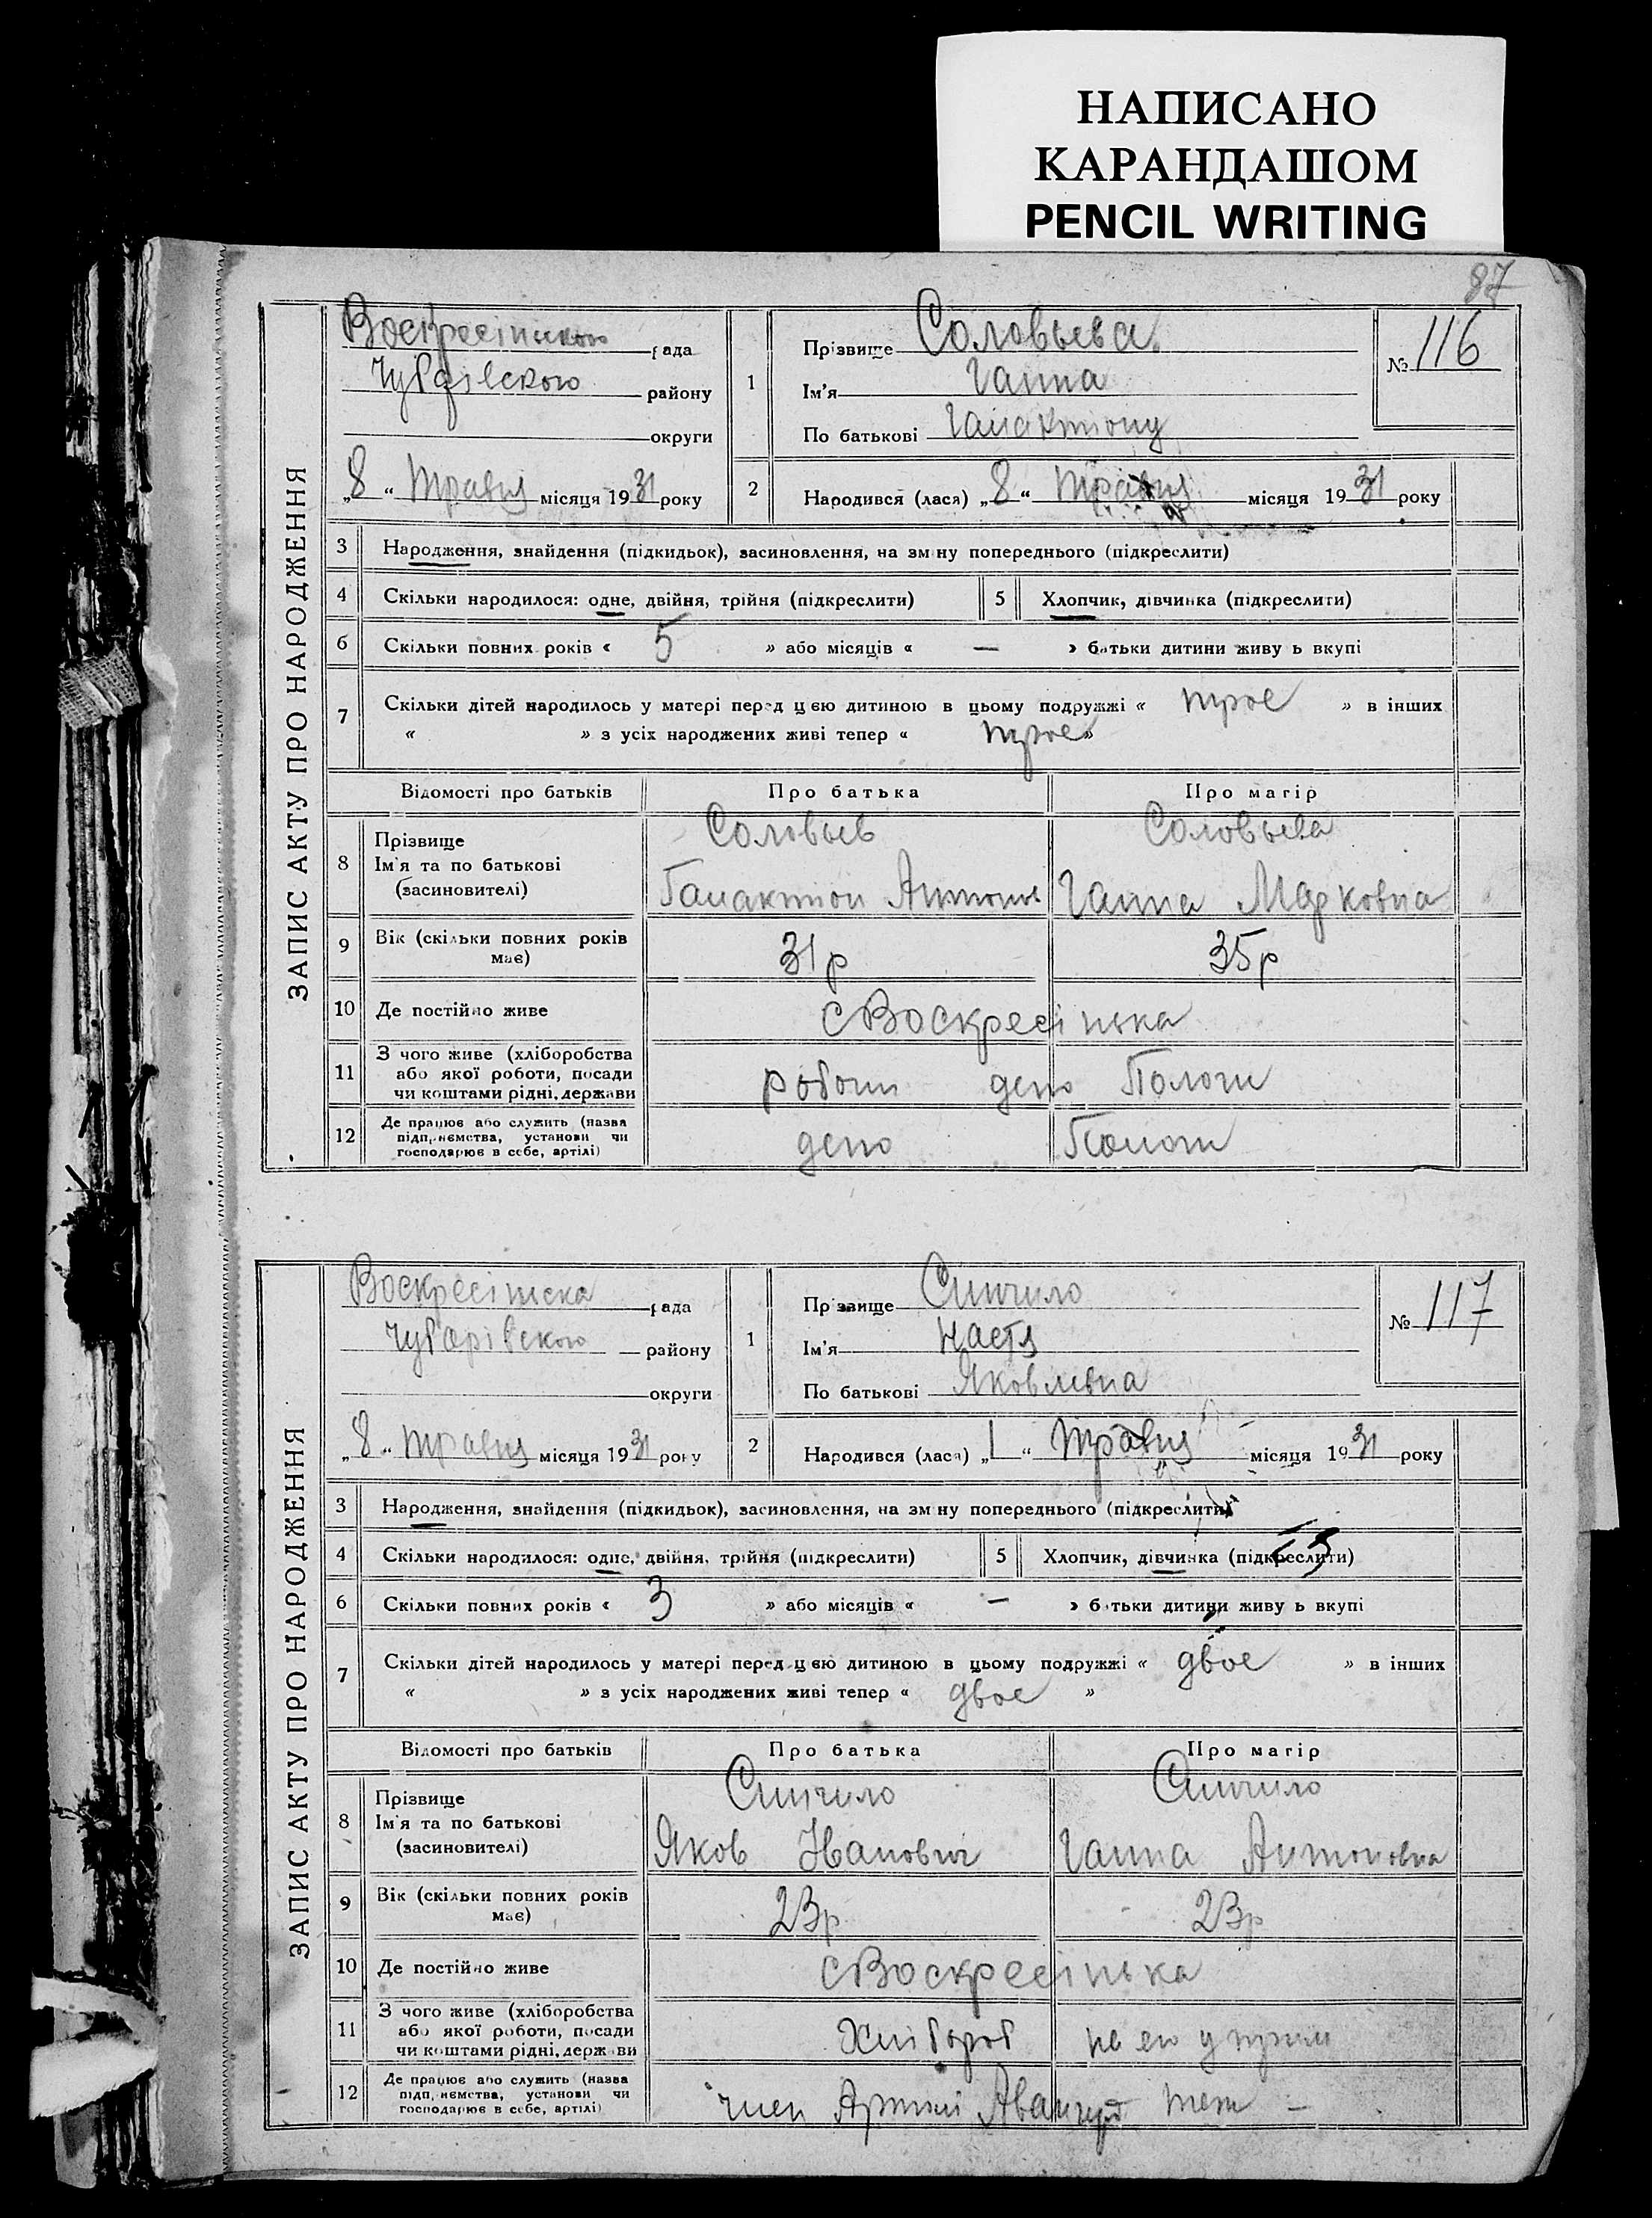 НАПИСАНО
КАРАНДАШОМ
PENCIL WRITING
87
ЗАПИС АКТУ ПРО НАРОДЖЕННЯ
Воскресінською рада
Чубарівского району
округи
„8“ Травня місяця 1931 року
1 Прізвище Соловьева
Ім'я Ганна
По батькові Галактіону
№ 116
2 Народився (лася) „8“ Травня місяця 1931 року
3 Народження, знайдення (підкидьок), засиновлення, на зміну попереднього (підкреслити)
4 Скільки народилося: одне, двійня, трійня (підкреслити) 5 Хлопчик, дівчинка (підкреслити)
6 Скільки повних років « 5 » або місяців « — » батьки дитини живуть вкупі
7 Скільки дітей народилось у матері перед цією дитиною в цьому подружжі « трое » в інших
« » з усіх народжених живі тепер « трое »
Відомості про батьків Про батька Про матір
8 Прізвище
Ім'я та по батькові
(засиновителі)
Соловьев Соловьева
Галактіон Антонов Ганна Марковна
9 Вік (скільки повних років
має)
31р 35р
10 Де постійно живе с Воскресінька
11 З чого живе (хліборобства
або якої роботи, посади
чи коштами рідні, держави
депо Пологи
12 Де працює або служить (назва
підприємства, установи чи
господарює в себе, артілі)
депо Пологи
ЗАПИС АКТУ ПРО НАРОДЖЕННЯ
Воскресінска рада
Чубарівского району
округи
„8“ Травня місяця 1931 року
1 Прізвище Синчило
Ім'я Настя
По батькові Яковлевна
№ 117
2 Народився (лася) „1“ Травня місяця 1931 року
3 Народження, знайдення (підкидьок), засиновлення, на зміну попереднього (підкреслити)
4 Скільки народилося: одне, двійня, трійня (підкреслити) 5 Хлопчик, дівчинка (підкреслити)
6 Скільки повних років « 3 » або місяців « — » батьки дитини живуть вкупі
7 Скільки дітей народилось у матері перед цією дитиною в цьому подружжі « двое » в інших
« » з усіх народжених живі тепер « двое »
Відомості про батьків Про батька Про матір
8 Прізвище
Ім'я та по батькові
(засиновителі)
Синчило Синчило
Яков Іванович Ганна Антоновна
9 Вік (скільки повних років
має)
23р 23р
10 Де постійно живе с Воскресінька
11 З чого живе (хліборобства
або якої роботи, посади
чи коштами рідні, держави
Хлібороб на его
12 Де працює або служить (назва
підприємства, установи чи
господарює в себе, артілі)
член Артилі Авангард теж —